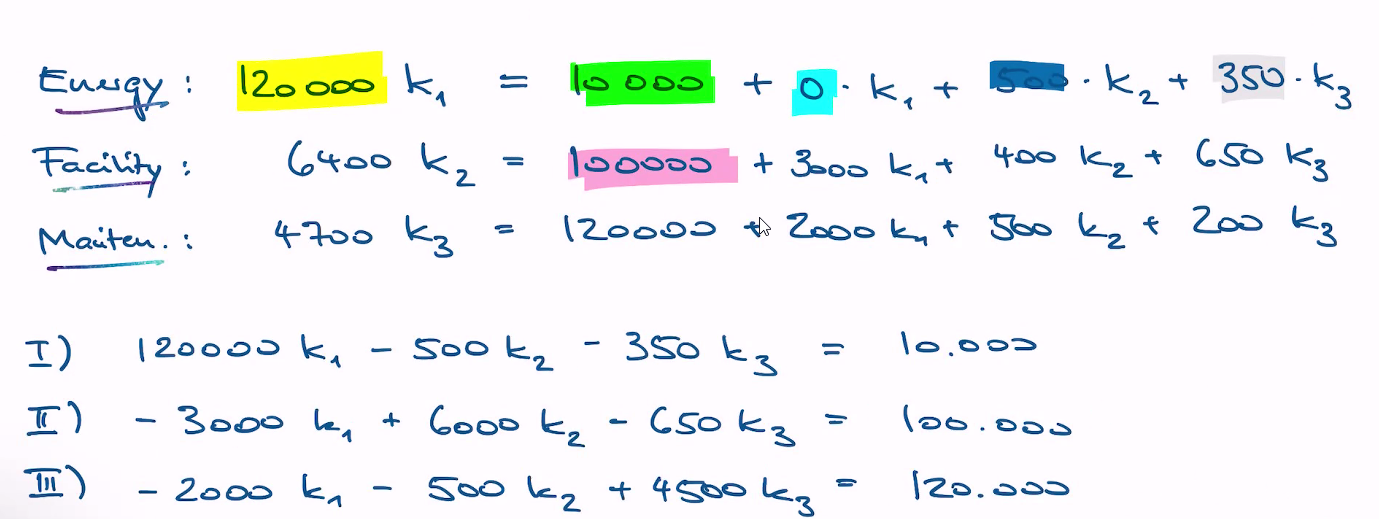 Energy : 120 000 k₁ = 10 000 + 0 · k₁ + 500 · k₂ + 350 · k₃
Facility : 6400 k₂ = 100000 + 3000 k₁ + 400 k₂ + 650 k₃
Mainten. : 4700 k₃ = 120000 + 2000 k₁ + 500 k₂ + 200 k₃
I) 120000 k₁ - 500 k₂ - 350 k₃ = 10.000
II) - 3000 k₁ + 6000 k₂ - 650 k₃ = 100.000
III) - 2000 k₁ - 500 k₂ + 4500 k₃ = 120.000